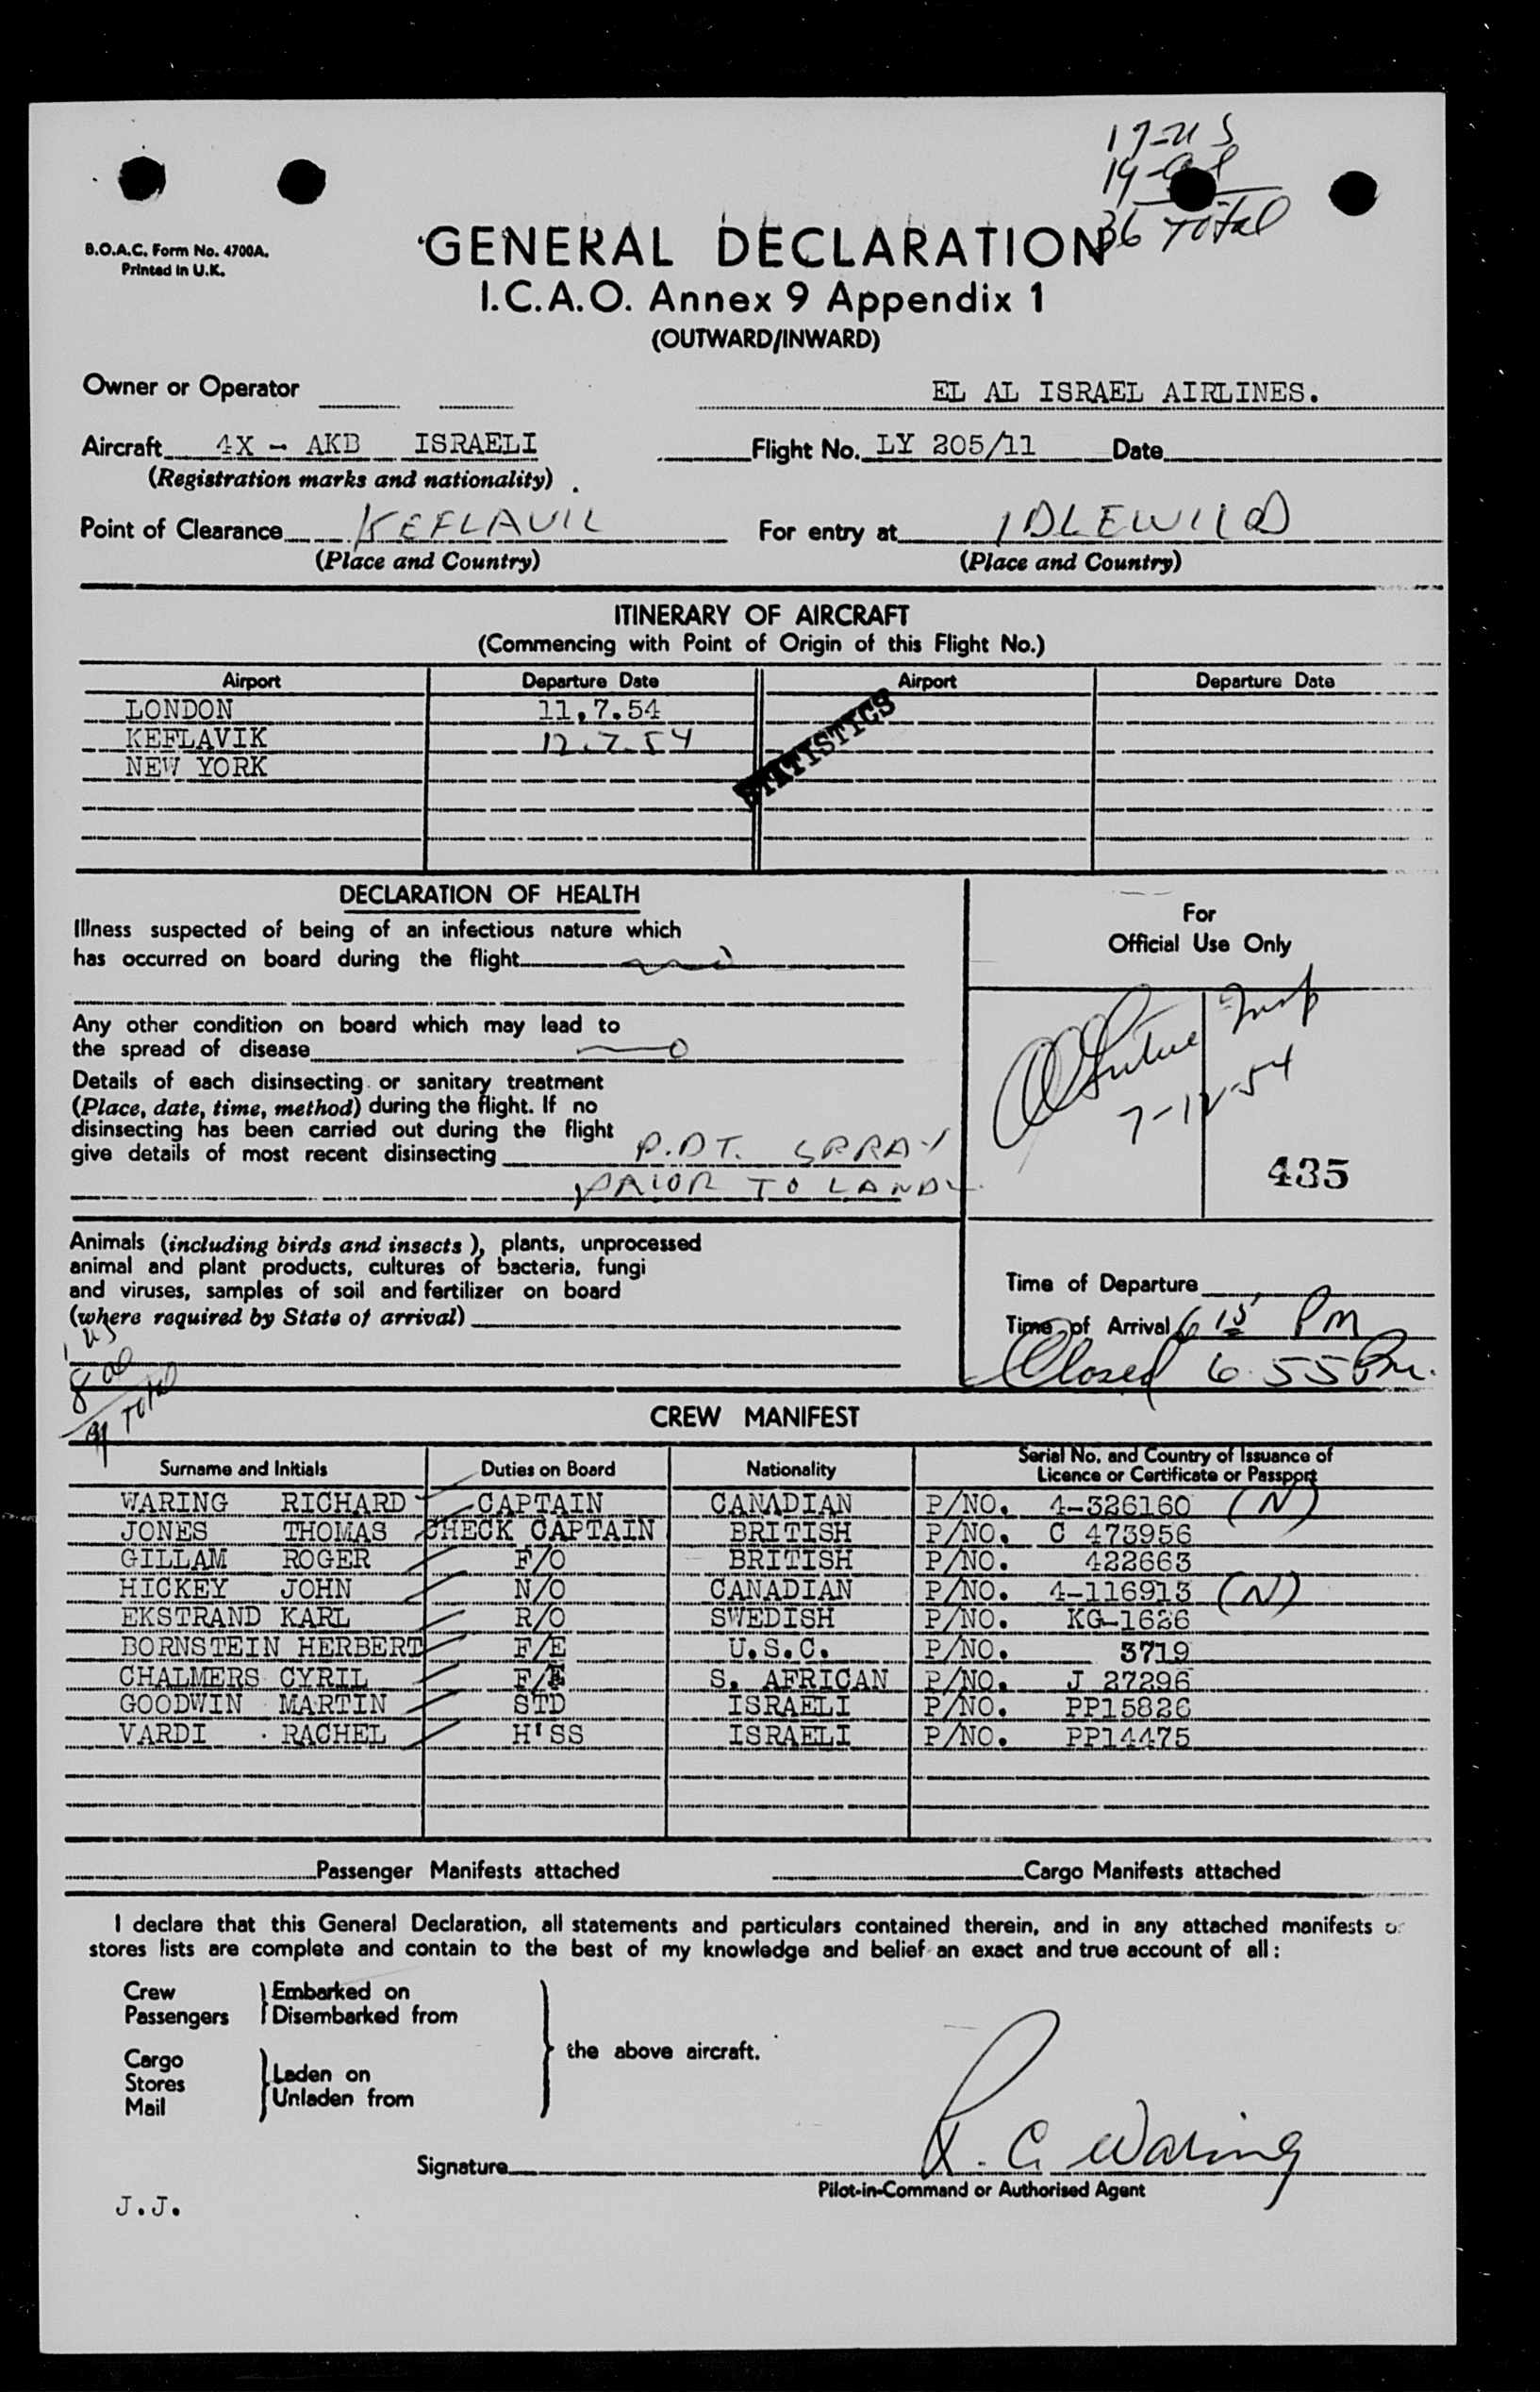 17-US
19-al
36 Total
B.O.A.C. Form No. 4700A.
Printed in U.K.
GENERAL DECLARATION
I.C.A.O. Annex 9 Appendix 1
(OUTWARD/INWARD)
Owner or Operator EL AL ISRAEL AIRLINES.
Aircraft 4X - AKB ISRAELI Flight No. LY 205/11 Date
(Registration marks and nationality)
Point of Clearance KEFLAVIK For entry at IDLEWILD
(Place and Country) (Place and Country)
ITINERARY OF AIRCRAFT
(Commencing with Point of Origin of this Flight No.)
Airport Departure Date Airport Departure Date
LONDON 11.7.54
KEFLAVIK 12.7.54
NEW YORK
STATISTICS
DECLARATION OF HEALTH
Illness suspected of being of an infectious nature which
has occurred on board during the flight
Any other condition on board which may lead to
the spread of disease
Details of each disinsecting or sanitary treatment
(Place, date, time, method) during the flight. If no
disinsecting has been carried out during the flight
give details of most recent disinsecting P.DT. SPRAY
PRIOR TO LAND
For
Official Use Only
Insp
7-12-54
435
Animals (including birds and insects), plants, unprocessed
animal and plant products, cultures of bacteria, fungi
and viruses, samples of soil and fertilizer on board
(where required by State of arrival)
Time of Departure
Time of Arrival 6 15 Pm
Closed 6 55 Pm.
1 US
8 al
9 Total
CREW MANIFEST
Surname and Initials Duties on Board Nationality Serial No. and Country of Issuance of
Licence or Certificate or Passport
WARING RICHARD CAPTAIN CANADIAN P/NO. 4-326160 (N)
JONES THOMAS CHECK CAPTAIN BRITISH P/NO. C 473956
GILLAM ROGER F/O BRITISH P/NO. 422663
HICKEY JOHN N/O CANADIAN P/NO. 4-116913 (N)
EKSTRAND KARL R/O SWEDISH P/NO. KG-1626
BORNSTEIN HERBERT F/E U.S.C. P/NO. 3719
CHALMERS CYRIL F/E S. AFRICAN P/NO. J 27296
GOODWIN MARTIN STD ISRAELI P/NO. PP15826
VARDI RACHEL H'SS ISRAELI P/NO. PP14475
Passenger Manifests attached Cargo Manifests attached
I declare that this General Declaration, all statements and particulars contained therein, and in any attached manifests or
stores lists are complete and contain to the best of my knowledge and belief an exact and true account of all:
Crew Embarked on
Passengers Disembarked from
the above aircraft.
Cargo
Stores Laden on
Mail Unladen from
Signature R. C. Waring
Pilot-in-Command or Authorised Agent
J.J.